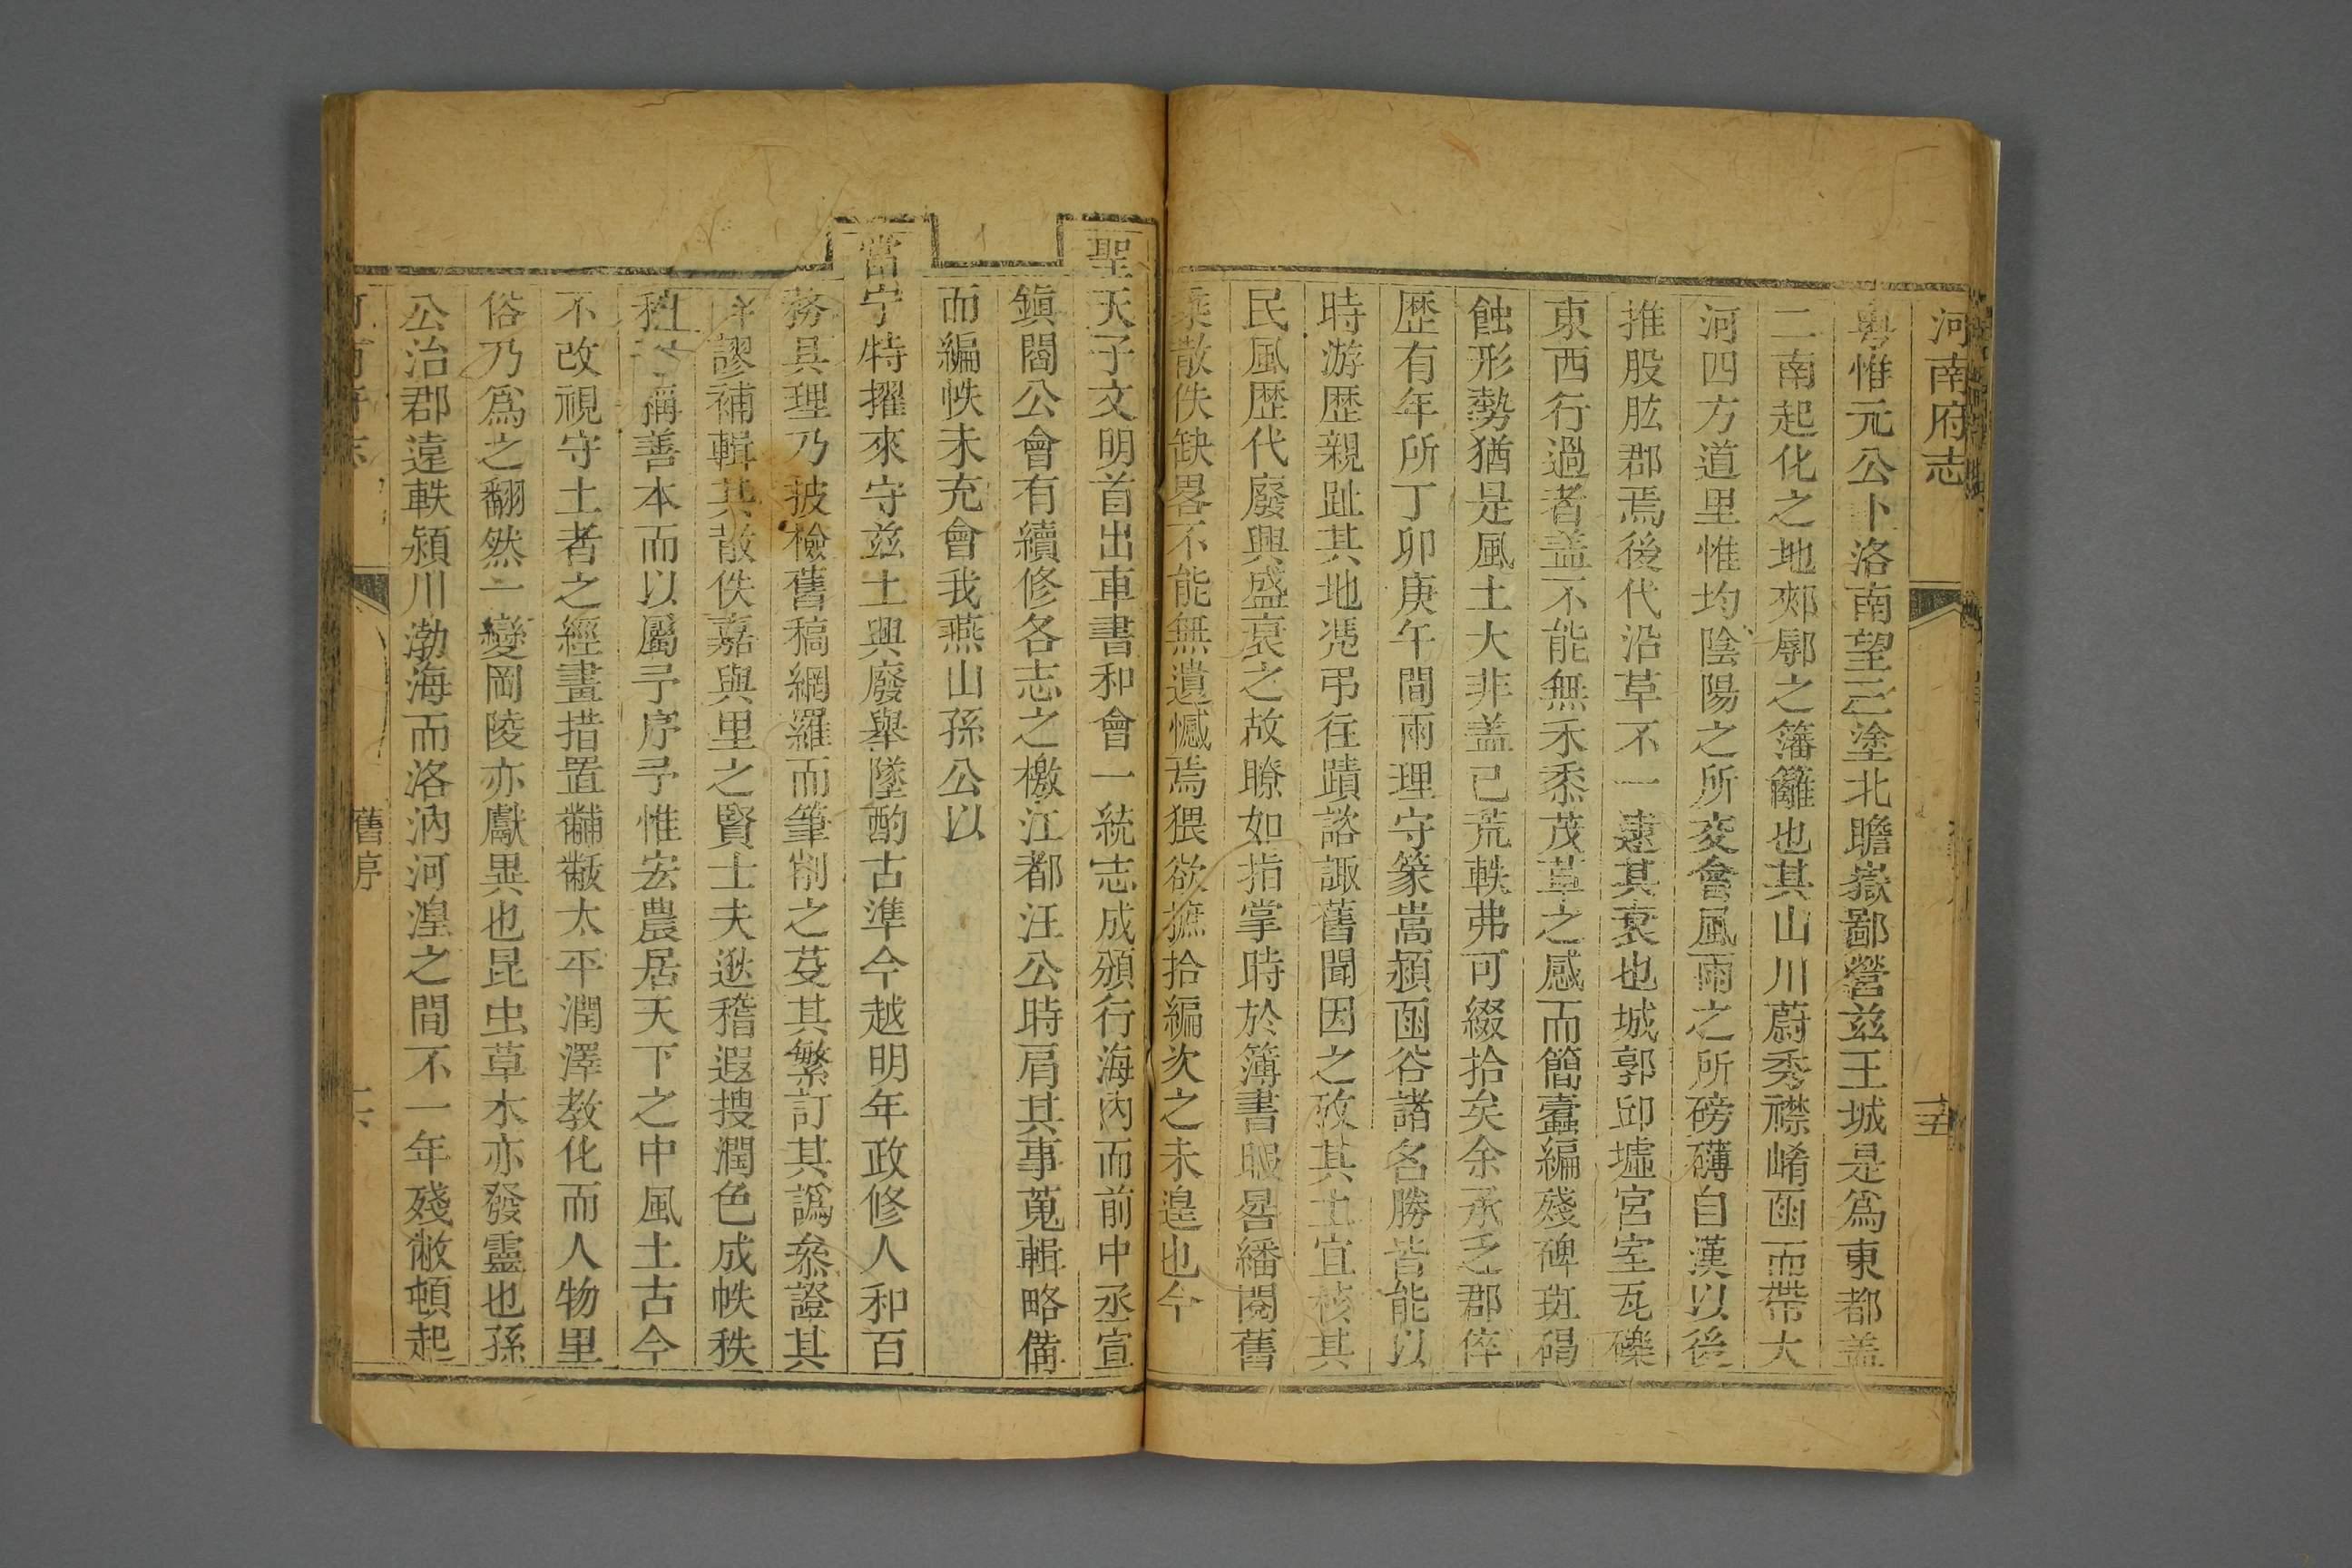 河南府志
粵惟元公卜洛南望三塗北瞻嶽鄙營兹王城是爲東都盖
二南起化之地郟鄏之籓籬也其山川蔚秀襟崤函而帶大
河四方道里惟均陰陽之所交會風雨之所磅礴自漢以後
推股肱郡焉後代沿革不一遠其衰也城郭邱墟宮室瓦礫
東西行過者盖不能無禾黍茂草之感而簡蠹編殘碑斑碣
蝕形勢猶是風土大非盖已荒軼弗可綴拾矣余承乏郡倅
歷有年所丁卯庚午間兩理守篆嵩潁函谷諸名勝皆能以
時游歷親趾其地凴弔往蹟諮諏舊聞因之攷其土宜核其
民風歷代廢興盛衰之故瞭如指掌時於簿書暇晷繙閱舊
乘散佚缺畧不能無遺憾焉猥欲摭拾編次之未遑也今
聖天子文明首出車書和會一統志成頒行海內而前中丞宣
鎮閻公會有續修各志之檄江都汪公時肩其事蒐輯略備
而編帙未充會我燕山孫公以
當宁特擢來守兹土興廢舉墜酌古準今越明年政修人和百
務具理乃披檢舊稿網羅而筆削之芟其繁訂其譌叅證其
謬補輯其散佚嘉與里之賢士夫遐稽遐搜潤色成帙秩
秩稱善本而以屬予序予惟宏農居天下之中風土古今
不改視守土者之經畫措置黼黻太平潤澤教化而人物里
俗乃爲之翻然一變岡陵亦獻異也昆虫草木亦發靈也孫
公治郡遠軼潁川渤海而洛汭河湟之間不一年殘敝頓起
舊序